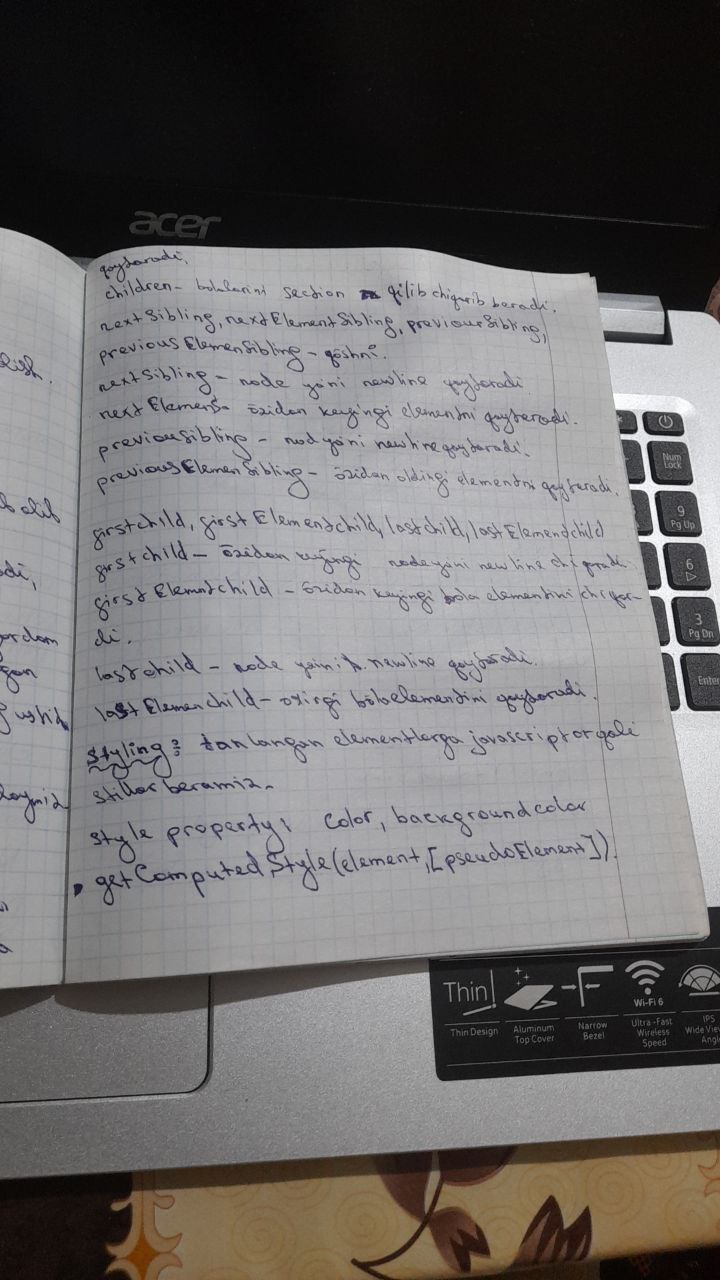 acer
qaytaradi.
children - bolalarini section qilib chiqarib beradi.
nextSibling, nextElementSibling, previousSibling,
previousElemenSibling - qo'shni.
nextSibling - node ya'ni newline qaytaradi
nextElemenS- õzidan keyingi elementni qaytaradi.
previousibling - nod ya'ni newline qaytaradi.
previousElemenSibling - õzidan oldingi elementni qaytaradi.
firstchild, first Elementchild, lastchild, lastElementchild
firstchild - õzidan keyingi node ya'ni newline chiqaradi
first Elemntchild - õzidan keyingi bola elementini chiqar-
di.
lastchild - node ya'ni newline qaytaradi.
lastElemenchild - oxirgi bola elementini qaytaradi.
Styling: tanlangan elementlarga javascript orqali
stillar beramiz.
Style property: color, backgroundcolor
• getComputedStyle(element,[pseudoElement]).
ib olib
adi,
yordam
gan
Num
Lock
9
Pg Up
6
3
Pg Dn
Enter
Thin
Thin Design
Aluminum
Top Cover
Narrow
Bezel
Wi-Fi 6
Ultra-Fast
Wireless
Speed
IPS
Wide View
Angle